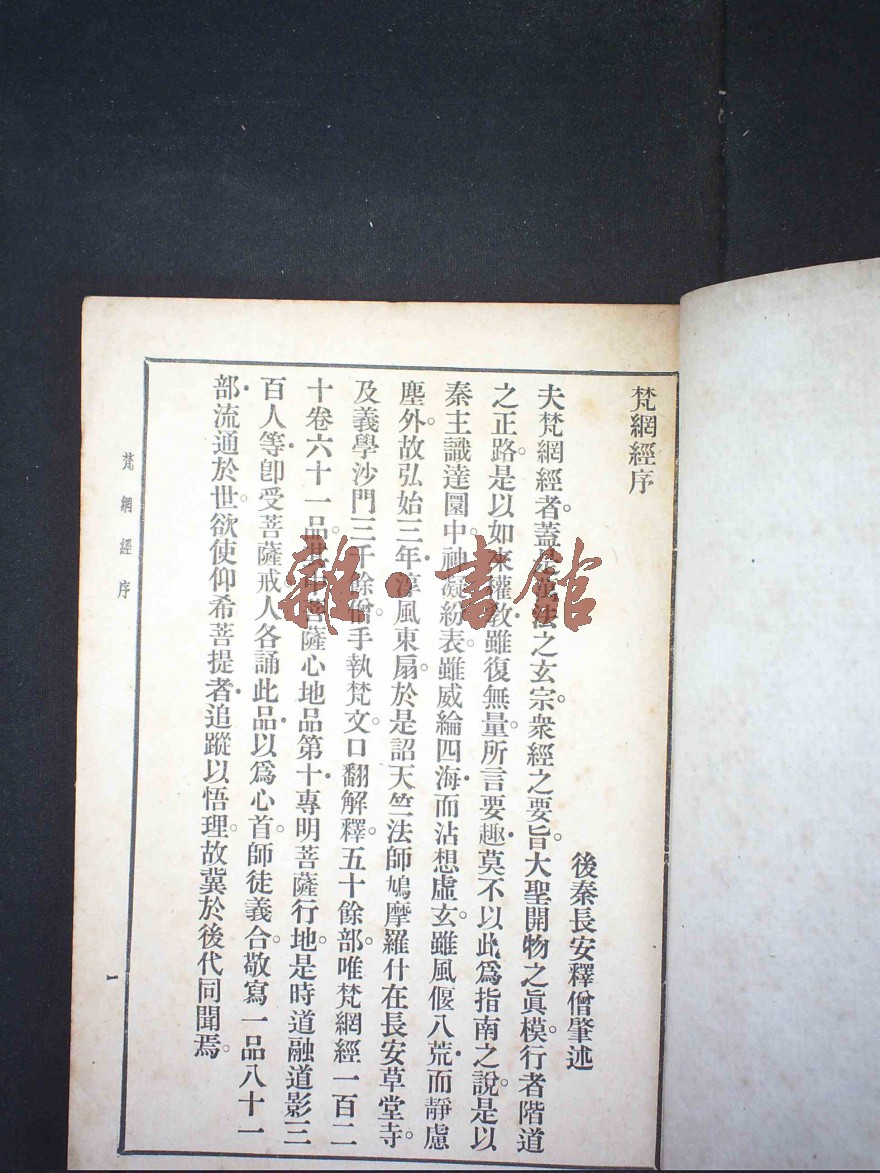 梵網經序
後秦長安釋僧肇述
夫梵網經者。蓋是萬法之玄宗。衆經之要旨。大聖開物之眞模。行者階道
之正路。是以如來權敎。雖復無量。所言要趣。莫不以此爲指南之說。是以
秦主識達圜中。神凝紛表。雖威綸四海。而沾想虛玄。雖風偃八荒。而靜慮
塵外。故弘始三年。淳風東扇。於是詔天竺法師鳩摩羅什在長安草堂寺。
及義學沙門三千餘僧。手執梵文。口翻解釋。五十餘部。唯梵網經一百二
十卷六十一品。其中菩薩心地品第十。專明菩薩行地。是時道融道影三
百人等。卽受菩薩戒。人各誦此品。以爲心首。師徒義合。敬寫一品八十一
部。流通於世。欲使仰希菩提者。追蹤以悟理。故冀於後代同聞焉。
梵網經序
一
雜·書館